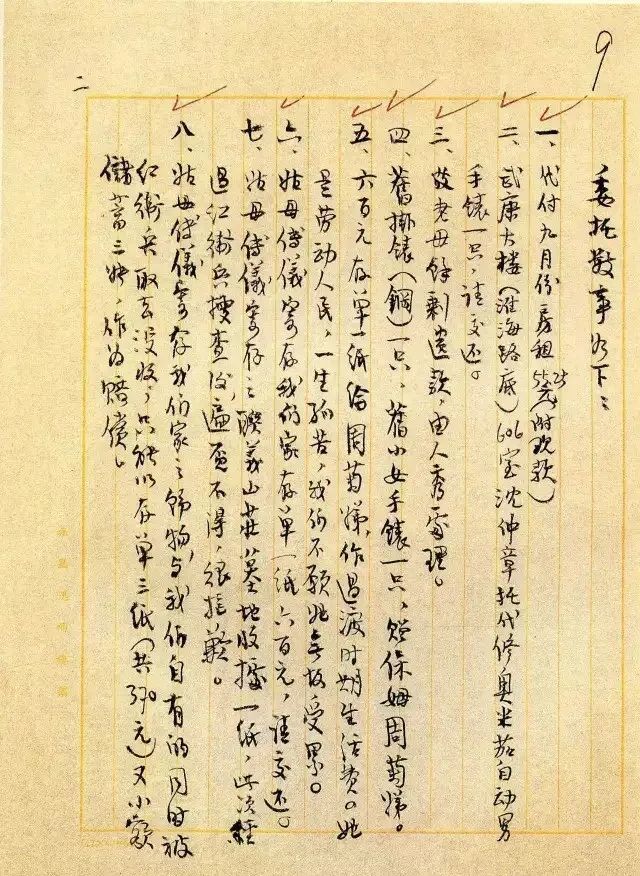 9
二
委托数事如下：
一、代付九月份房租55.29元(附现款)
二、武康大楼(淮海路底)606室沈仲章托代修奥米茄自动男
手錶一只，请交还。
三、故老母餘剩遗款，由人秀處理。
四、舊掛錶(鋼)一只，舊小女手錶一只，贈保姆周菊娣。
五、六百元存单一纸给周菊娣，作过渡时期生活费。她
是劳动人民，一生孤苦，我们不愿她无故受累。
六、姑母傅儀寄存我们家存单一纸六百元，请交还。
七、姑母傅儀寄存之联義山莊墓地收據一纸，此次经
过红衛兵搜查后，遍觅不得，很抱歉。
八、姑母傅儀寄存我们家之饰物，与我们自有的同时被
红衛兵取去没收，只能以存单三纸(共370元)又小额
儲蓄三张，作为赔偿。